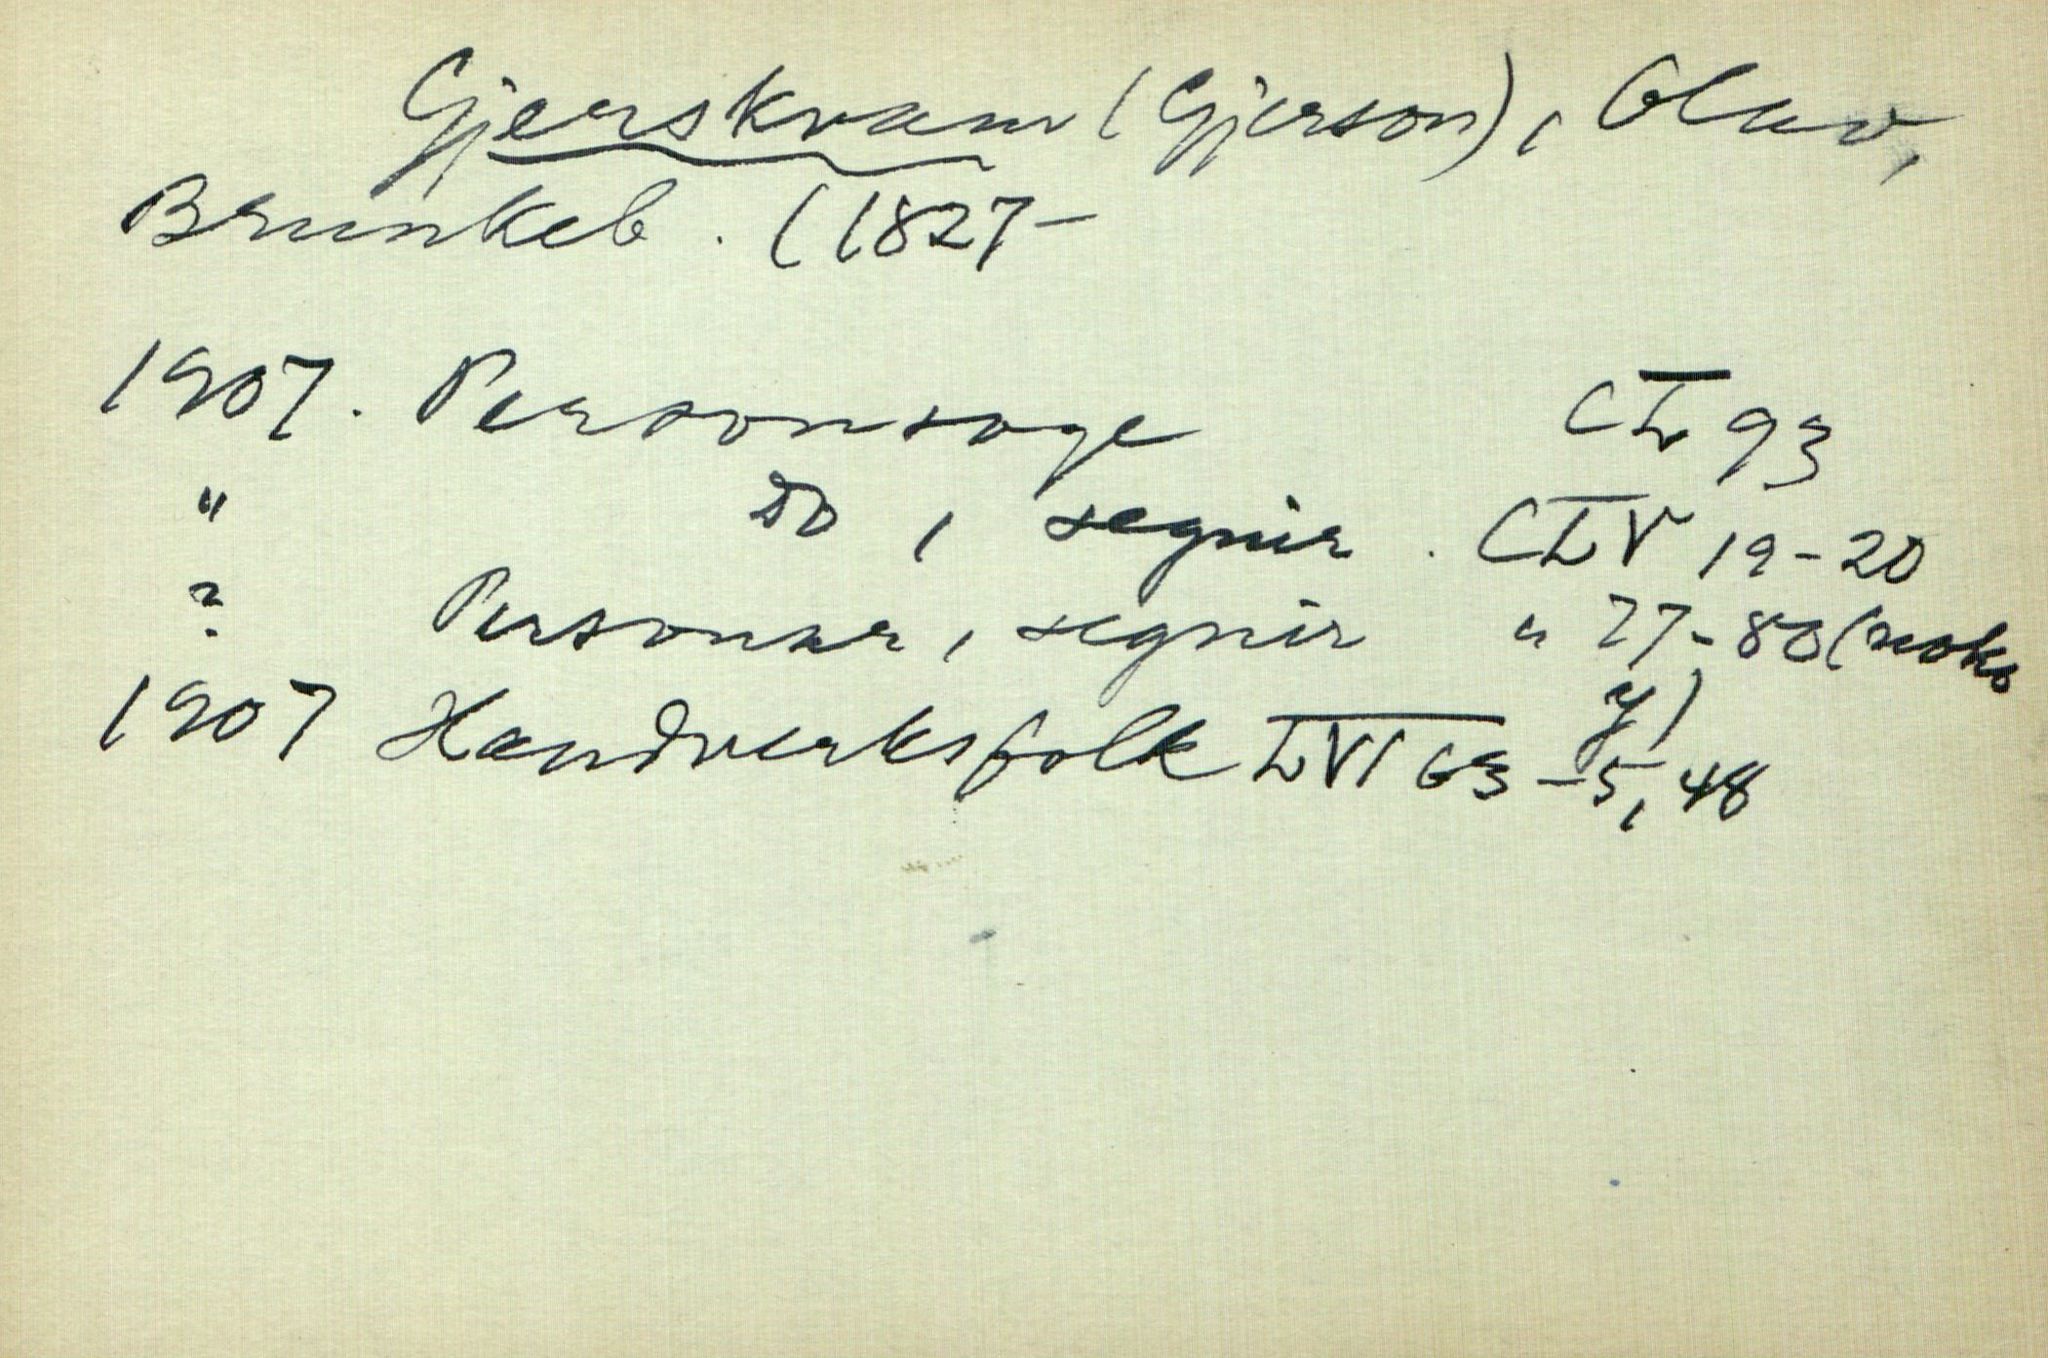 Gjerskvam (Gjerson), Olav,
Brunkeb. (1827-
1907. Personsoge CL 93
" Do, segnir. CLV 19-20
? Personar, segnir " 77-80 (noko
y)
1907 Handverksfolk LVI 63-5, 48